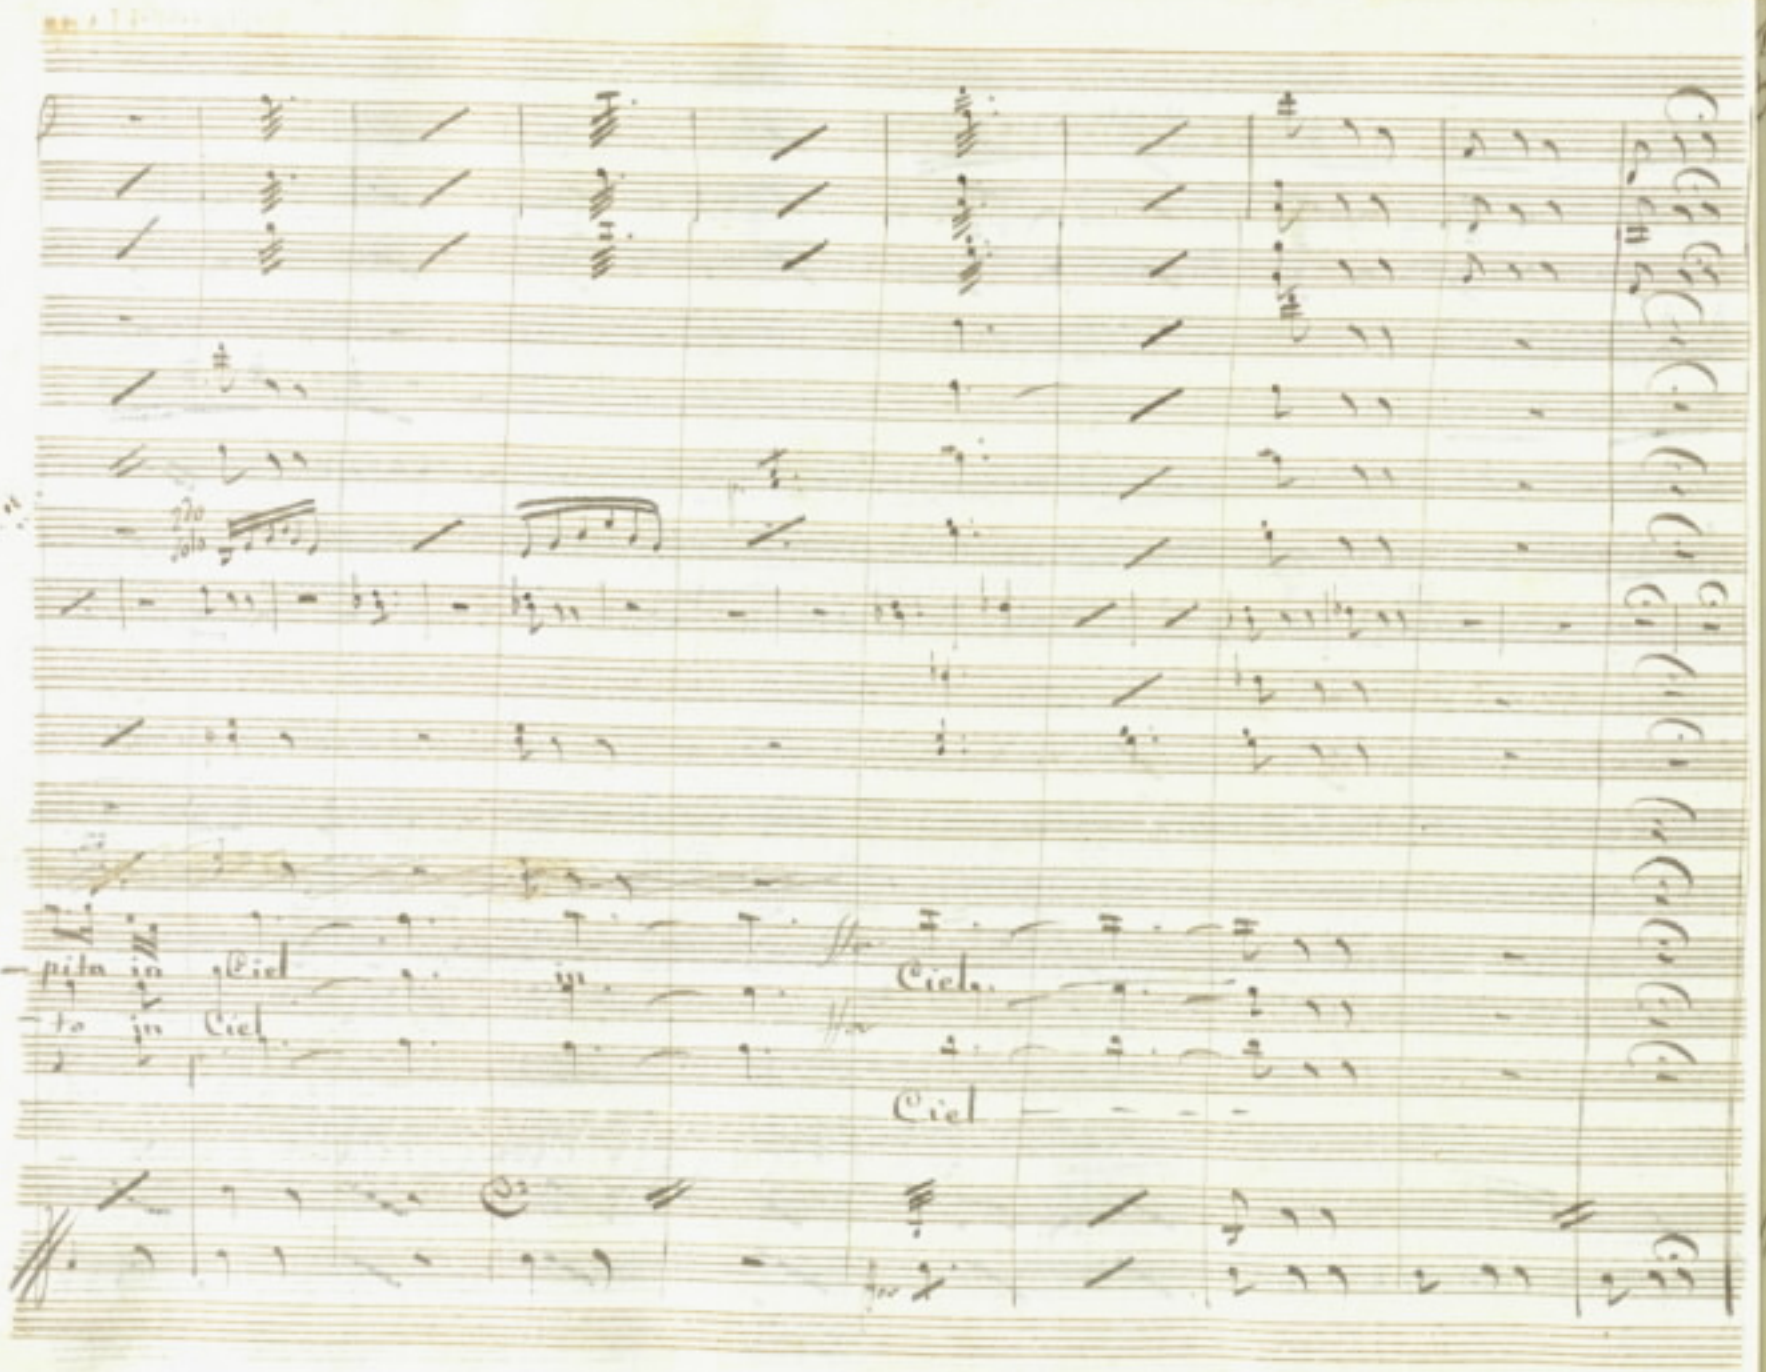 solo
pita in Ciel in Ciel
to in Ciel
Ciel - - - -